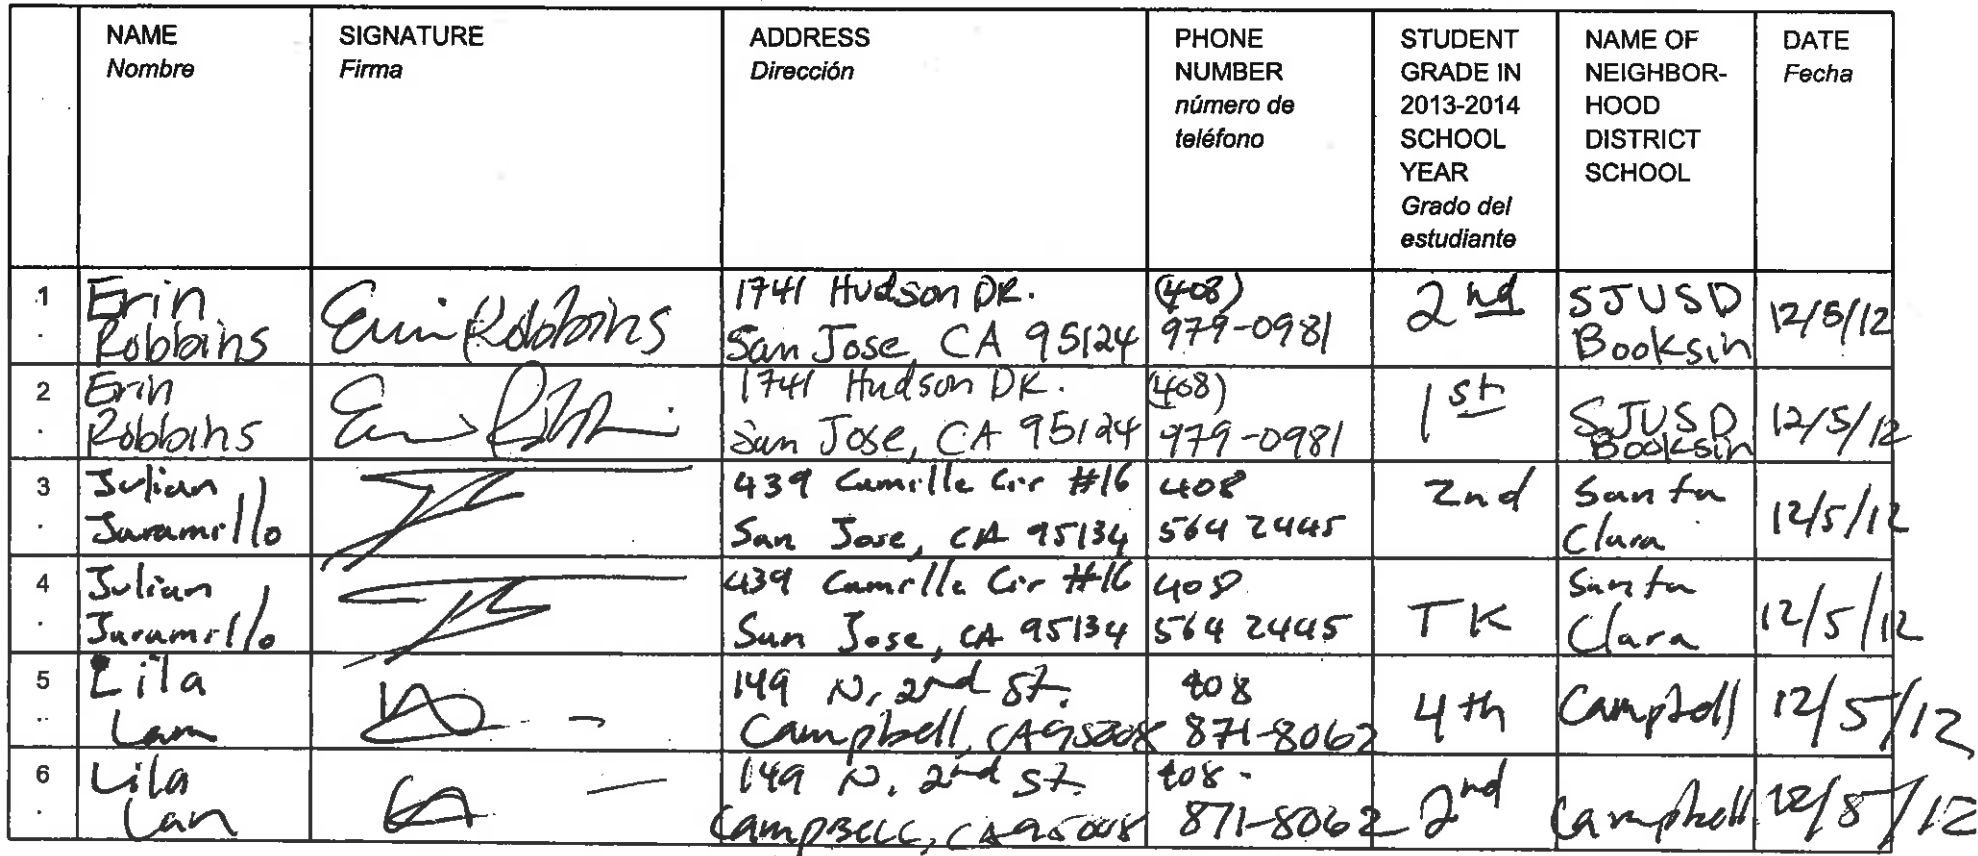 NAME
Nombre
SIGNATURE
Firma
ADDRESS
Dirección
PHONE
NUMBER
número de
teléfono
STUDENT
GRADE IN
2013-2014
SCHOOL
YEAR
Grado del
estudiante
NAME OF
NEIGHBOR-
HOOD
DISTRICT
SCHOOL
DATE
Fecha
1
.
Erin
Robbins
Erin Robbins
1741 Hudson DR.
San Jose, CA 95124
(408)
979-0981
2nd
SJUSD
Booksin
12/5/12
2
.
Erin
Robbins
1741 Hudson DR.
San Jose, CA 95124
(408)
979-0981
1st
SJUSD
Booksin
12/5/12
3
.
Julian
Jaramillo
439 Camille Cir #16
San Jose, CA 95134
408
564 2445
2nd
Santa
Clara
12/5/12
4
.
Julian
Jaramillo
439 Camille Cir #16
San Jose, CA 95134
408
564 2445
TK
Santa
Clara
12/5/12
5
Lila
Lam
149 N. 2nd St.
Campbell, CA
408
871-8062
4th
Campbell
12/5/12
6
.
Lila
Lam
149 N. 2nd St.
CAMPBELL, CA 95008
408-
871-8062
2nd
Campbell
12/5/12